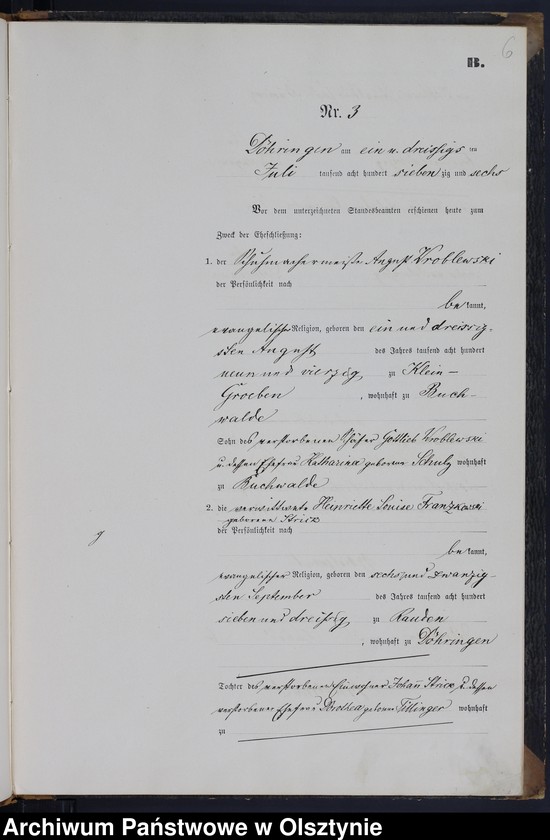 6
B.
Nr. 3
Döhringen am ein u. dreißigs ten
Juli tausend acht hundert sieben zig und sechs
Vor dem unterzeichneten Standesbeamten erschienen heute zum
Zweck der Eheschließung:
1. der Schuhmachermeister August Wroblewski
der Persönlichkeit nach
be kannt,
evangelischer Religion, geboren den ein und dreißig-
sten August des Jahres tausend acht hundert
neun und vierzig, zu Klein-
Groeben, wohnhaft zu Buch-
walde
Sohn des verstorbenen Gottlieb Wroblewski
u. dessen Ehefrau Katharina geborene Schulz wohnhaft
zu Buchwalde
2. die verwittwete Henriette Louise Franzkowski
geborene
der Persönlichkeit nach
be kannt,
evangelischer Religion, geboren den sechs und zwanzig-
sten September des Jahres tausend acht hundert
sieben und dreißig, zu Rauden
, wohnhaft zu Döhringen
Tochter des verstorbenen Einwohner Johann u. dessen
verstorbenen Ehefrau Dorothea geboren wohnhaft
zu
Archiwum Państwowe w Olsztynie